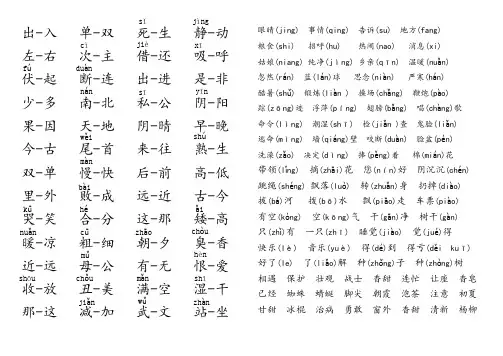 sǐ jìng
出-入 单-双 死-生 静-动
cì jiè xī
左-右 次-主 借-还 吸-呼
fú duàn
伏-起 断-连 出-进 是-非
nán sī
少-多 南-北 私-公 阴-阳
果-因 天-地 阴-晴 早-晚
wěi shú
今-古 尾-首 来-往 熟-生
màn
双-单 慢-快 后-前 高-低
bài
里-外 败-成 远-近 古-今
kū hé ǎi
哭-笑 合-分 这-那 矮-高
nuǎn cū zhāo chòu
暖-凉 粗-细 朝-夕 臭-香
mǔ hèn
近-远 母-公 有-无 恨-爱
shōu chǒu mǎn shī
收-放 丑-美 满-空 湿-干
jiǎn wǔ zhàn
那-这 减-加 武-文 站-坐
眼睛(jing) 事情(qing) 告诉(su) 地方(fang)
粮食(shi) 招呼(hu) 热闹(nao) 消息(xi)
姑娘(niang) 纯净(jìng) 乡亲(qīn) 温暖(nuǎn)
忽然(rán) 蓝(lán)球 思念(niàn) 严寒(hán)
酷暑(shǔ) 锻炼(liàn) 操场(chǎng) 鞭炮(pào)
踪(zōng)迹 浮萍(píng) 翅膀(bǎng) 唱(chàng)歌
命令(lìng) 潮湿(shī) 检(jiǎn)查 鬼脸(liǎn)
逃命(mìng) 墙(qiáng)壁 哎断(duàn) 脸盆(pén)
洗澡(zǎo) 决定(dìng) 捧(pěng)着 棉(mián)花
带领(lǐng) 摘(zhāi)花 您(nín)好 阴沉沉(chén)
跳绳(shéng) 飘落(luò) 转(zhuǎn)身 扔掉(diào)
拔(bá)河 拨(bō)水 飘(piāo)走 车票(piào)
有空(kòng) 空(kōng)气 干(gān)净 树干(gàn)
只(zhǐ)有 一只(zhī) 睡觉(jiào) 觉(jué)得
快乐(lè) 音乐(yuè) 得(dé)到 得亏(děi kuī)
好了(le) 了(liǎo)解 种(zhǒng)子 种(zhòng)树
相遇 保护 壮观 战士 香甜 连忙 让座 香皂
已经 蜘蛛 蜻蜓 脚尖 朝霞 泡茶 注意 初夏
甘甜 冰棍 治病 勇敢 窗外 香甜 清新 杨柳